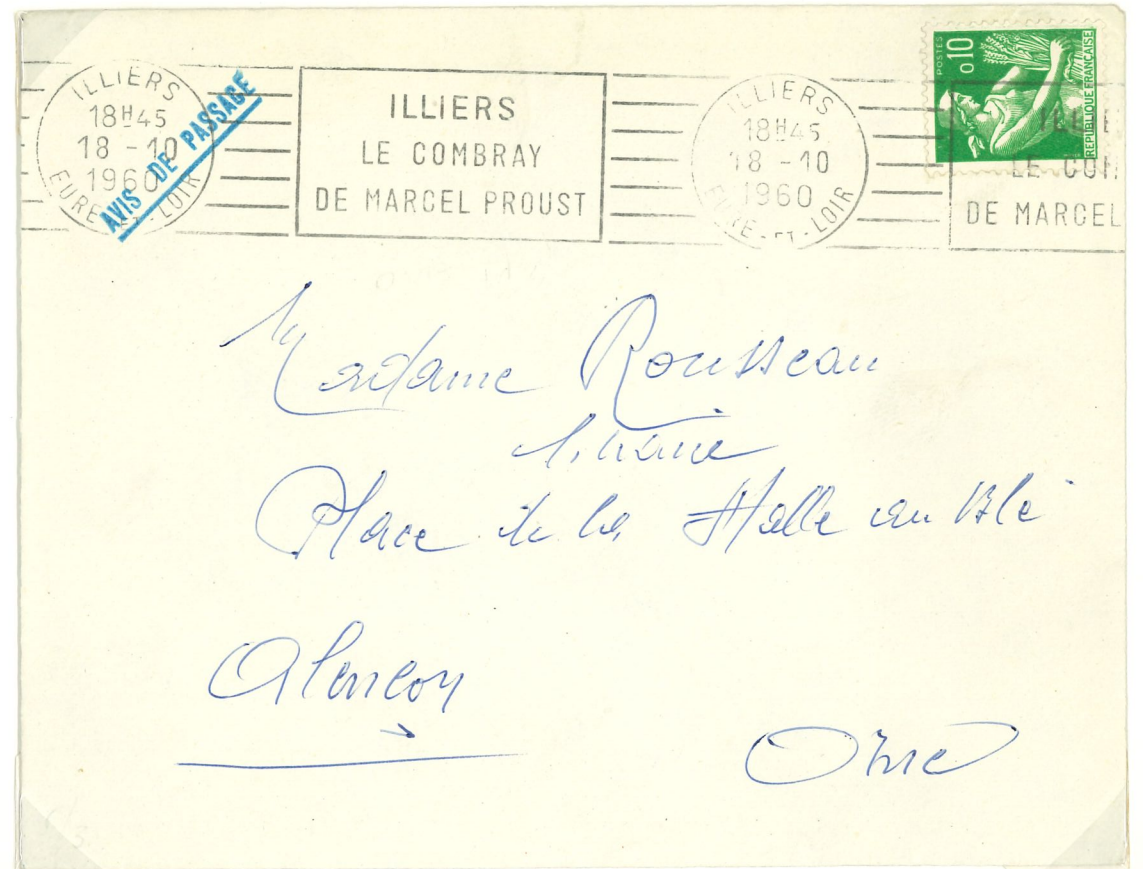 ILLIERS
18H45
18 - 10
1960
EURE-ET-LOIR
AVIS DE PASSAGE
ILLIERS
LE COMBRAY
DE MARCEL PROUST
ILLIERS
18H45
18 - 10
1960
EURE-ET-LOIR
POSTES
0,10
REPUBLIQUE FRANÇAISE
ILLIE
LE COM
DE MARCEL
Madame Rousseau
Place de la Halle au Blé
Alençon
Orne